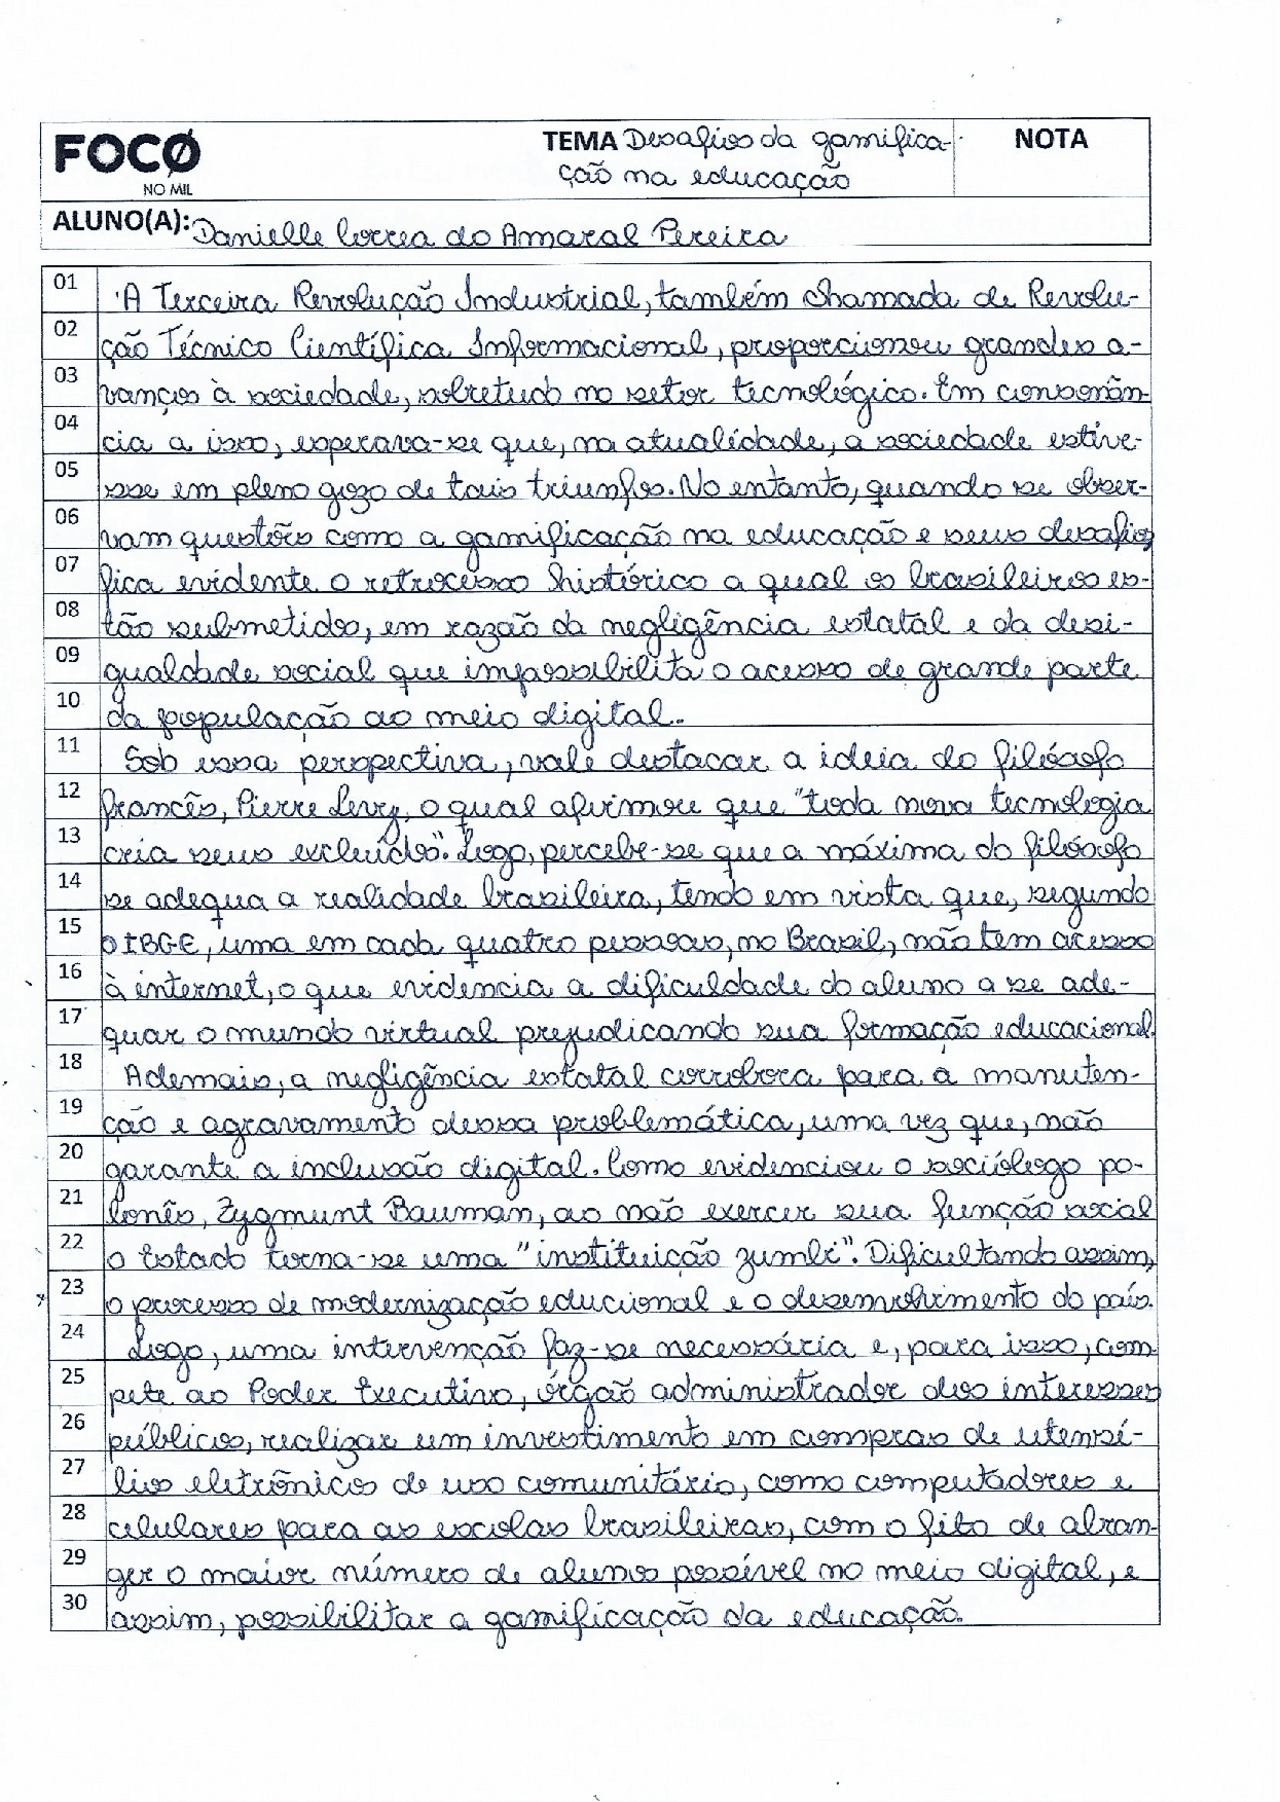 FOCO
NO MIL
TEMA Desafios da gamifica-
ção na educação
NOTA
ALUNO(A): Danielle Correa do Amaral Pereira
01 A Terceira Revolução Industrial, também chamada de Revolu-
02 ção Técnico Científica Informacional, proporcionou grandes a-
03 vanços à sociedade, sobretudo no setor tecnológico. Em consonân-
04 cia a isso, esperava-se que, na atualidade, a sociedade estive-
05 sse em pleno gozo de tais triunfos. No entanto, quando se obser-
06 vam questões como a gamificação na educação e seus desafios
07 fica evidente o retrocesso histórico a qual os brasileiros es-
08 tão submetidos, em razão da negligência estatal e da desi-
09 gualdade social que impossibilita o acesso de grande parte
10 da população ao meio digital.
11 Sob essa perspectiva, vale destacar a ideia do filósofo
12 francês, Pierre Levy, o qual afirmou que "toda nova tecnologia
13 cria seus excluídos". Logo, percebe-se que a máxima do filósofo
14 se adequa a realidade brasileira, tendo em vista que, segundo
15 o IBGE, uma em cada quatro pessoas, no Brasil, não tem acesso
16 à internet, o que evidencia a dificuldade do aluno a se ade-
17 quar o mundo virtual prejudicando sua formação educacional.
18 Ademais, a negligência estatal corrobora para a manuten-
19 ção e agravamento dessa problemática, uma vez que, não
20 garante a inclusão digital. Como evidenciou o sociólogo po-
21 lonês, Zygmunt Bauman, ao não exercer sua função social
22 o Estado torna-se uma "instituição zumbi". Dificultando assim,
23 o processo de modernização educional e o desenvolvimento do país.
24 Logo, uma intervenção faz-se necessária e, para isso, com
25 pete ao Poder Executivo, órgão administrador dos interesses
26 públicos, realizar um investimento em compras de utensí-
27 lios eletrônicos de uso comunitário, como computadores e
28 celulares para as escolas brasileiras, com o fito de abran-
29 ger o maior número de alunos possível no meio digital, e
30 assim, possibilitar a gamificação da educação.